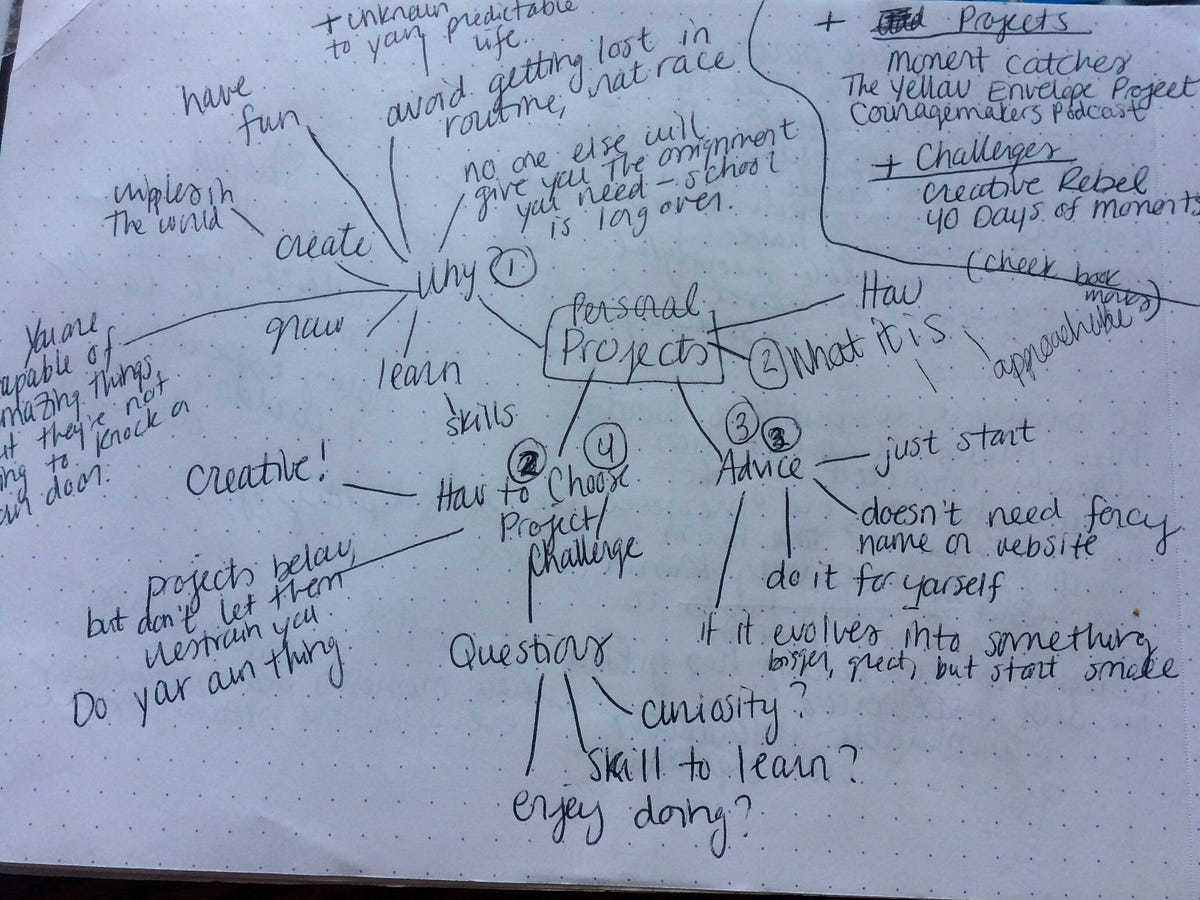 + unknown
to your predictable
life.
have
fun
avoid getting lost in
routine, rat race
no one else will
give you the assignment
you need - school
is long over.
ripples in
The world
create
Why 1
grow
learn
skills
You are
capable of
amazing things,
but they're not
going to knock on
your door.
+ Projects
moment catcher
The Yellow Envelope Project
Couragemakers Podcast
+ Challenges
Creative Rebel
40 Days of Moments
(check book
moves)
Personal
Projects
How
2 What it is
approachable
3 Advice
just start
doesn't need fancy
name or website
do it for yourself
if it evolves into something
bigger, great, but start small
4
How to Choose
Project/
Challenge
Creative!
projects below,
but don't let them
restrain you
Do your own thing.
Questions
curiosity?
Skill to learn?
enjoy doing?